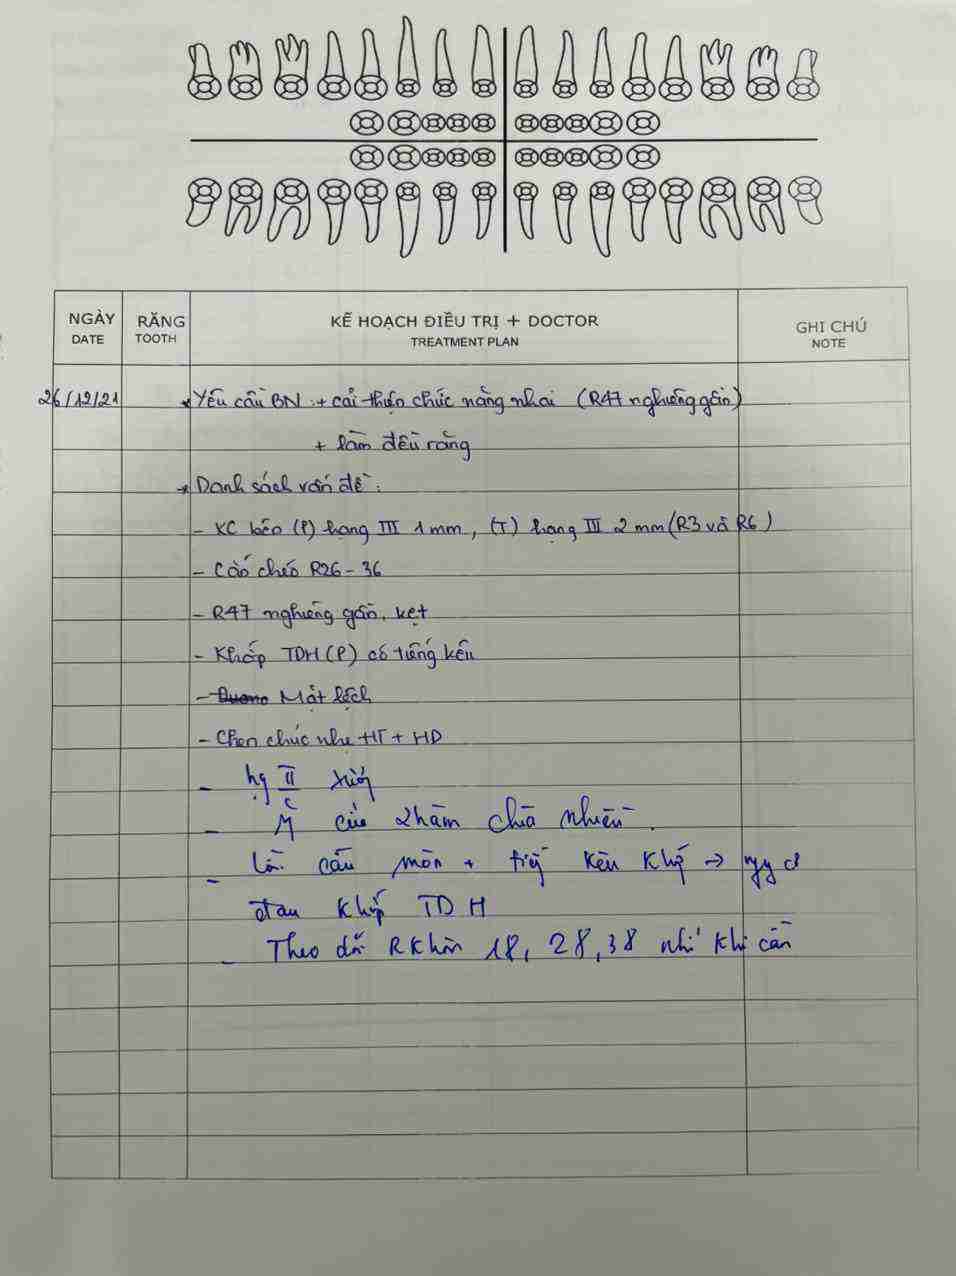 NGÀY
DATE
RĂNG
TOOTH
KẾ HOẠCH ĐIỀU TRỊ + DOCTOR
TREATMENT PLAN
GHI CHÚ
NOTE
26/12/21
* Yêu cầu BN : + cải thiện chức năng nhai (R47 nghiêng gần)
+ làm đều răng
* Danh sách vấn đề :
- KC kéo (P) hạng III 1 mm, (T) hạng III 2 mm (R3 và R6)
- Cắn chéo R26 - 36
- R47 nghiêng gần, kẹt
- Khớp TDH (P) có tiếng kêu
- Mặt lệch
- Chen chúc nhẹ HT + HD
- hg II xương
- của 2 hàm chìa nhiều.
- cắn mòn + tiếng kêu khớp →
đau khớp TDH
- Theo dõi R khôn 18, 28, 38 nhổ khi cần